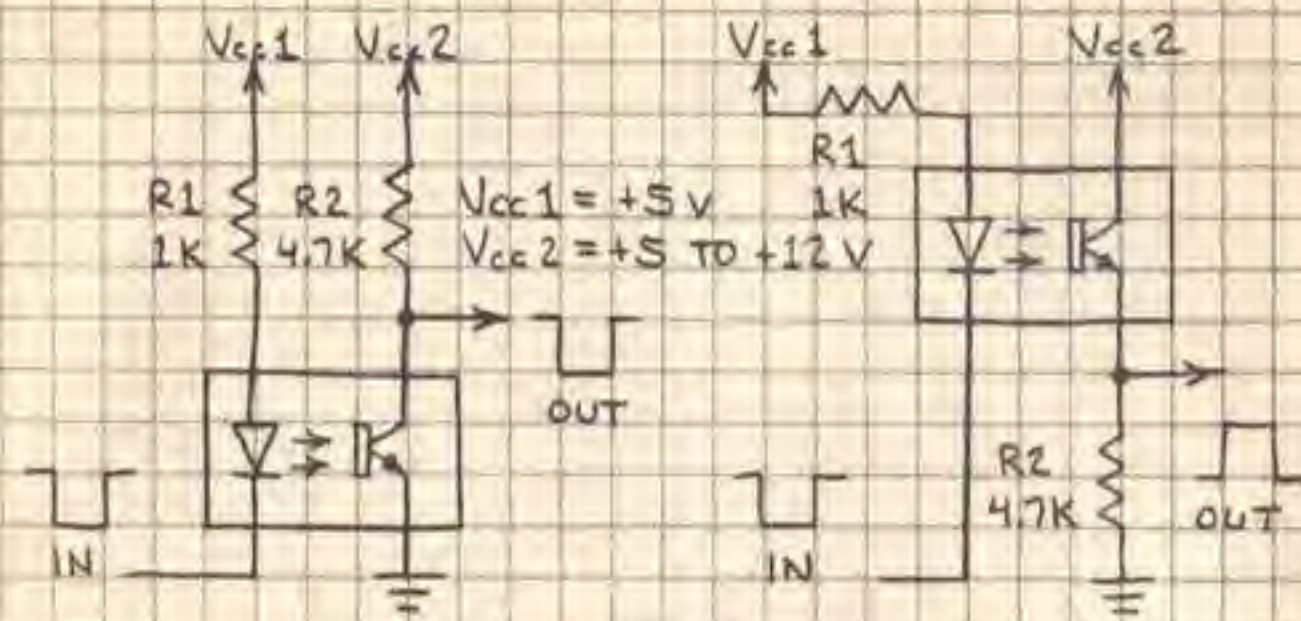 Vcc1 Vcc2
R1
1K
R2
4.7K
Vcc1 = +5 V
Vcc2 = +5 TO +12 V
OUT
IN
Vcc1
Vcc2
R1
1K
R2
4.7K
OUT
IN